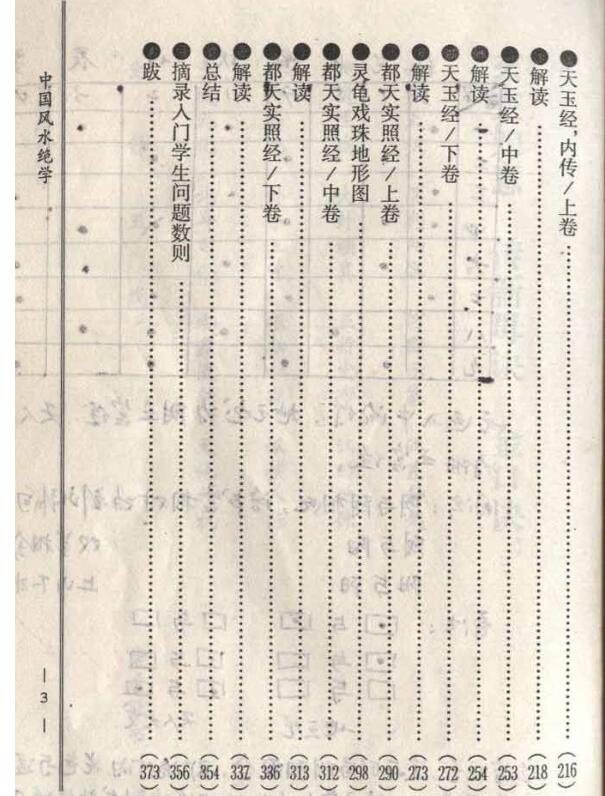 ●天玉经,内传/上卷……(216)
●解读……(218)
●天玉经/中卷……(253)
●解读……(254)
●天玉经/下卷……(272)
●解读……(273)
●都天实照经/上卷……(290)
●灵龟戏珠地形图……(298)
●都天实照经/中卷……(312)
●解读……(313)
●都天实照经/下卷……(336)
●解读……(337)
●总结……(354)
●摘录入门学生问题数则……(356)
●跋……(373)
中国风水绝学
— 3 —